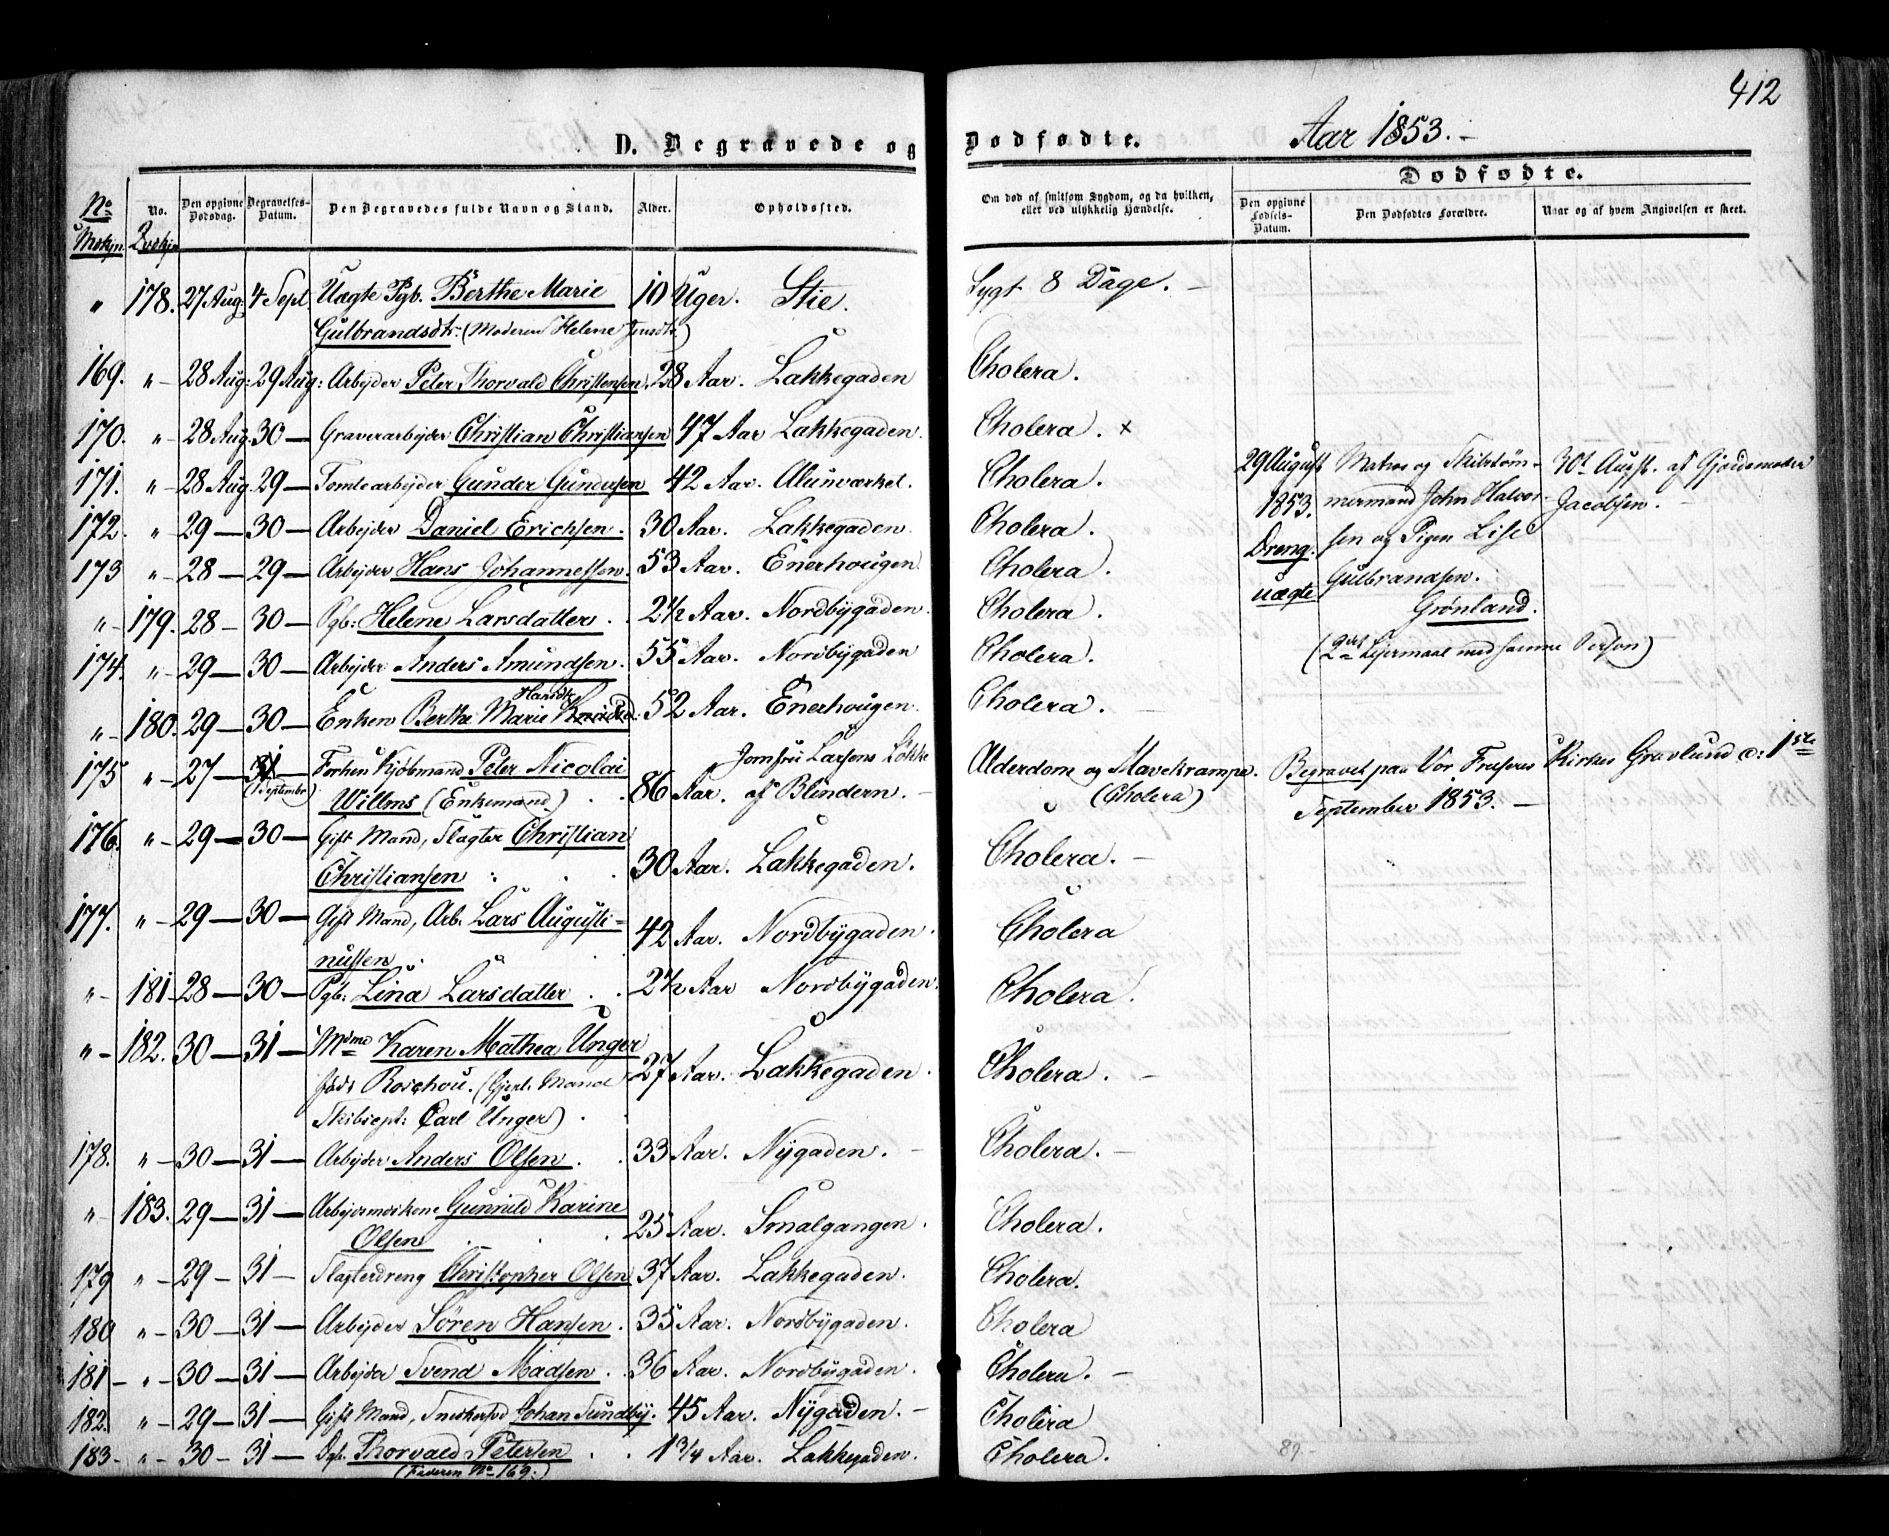 412
D. Begravede og Dødfødte. Aar 1853.-
Dødfødte.
No Mskjn. No. Qvskjn Den opgivne Dødsdag. Begravelses-Datum. Den Begravedes fulde Navn og Stand. Alder. Opholdssted. Om død af smitsom Sygdom, og da hvilken, eller ved ulykkelig Hændelse. Den opgivne Fødsels-Datum. Den Dødfødtes Forældre. Naar og af hvem Angivelsen er skeet.
" 178. 27 Aug: 4 Sept Uægte Pgb. Berthe Marie 10 Uger. Stie. Sygt 8 Dage. -
Gulbrandsdtr: (Moderen Helene Jensdtr)
169. " - 28 Aug: 29 Aug: Arbejder Peter Thorvald Christensen. 28 Aar. Lakkegaden Cholera.
170. " - 28 Aug. 30 - Graverarbejder Christian Christiansen 47 Aar Lakkegaden. Cholera. x
171. " - 28 Aug. 29 - Tomtearbejder Gunder Gundersen 42 Aar. Alunværket. Cholera.
172. " 29 - 30 - Arbejder Daniel Erichsen. 30 Aar. Lakkegaden. Cholera.
173 " 28 - 29 - Arbejder Hans Johannessen. 53 Aar. Enerhougen Cholera.
" - 179. 28 - 30 - Pgb: Helene Larsdatter. 2½ Aar. Nordbygaden. Cholera.
174. " 29 - 30 - Arbejder Anders Amundsen. 55 Aar. Nordbygaden Cholera.
Hansdtr
" - 180. 29 - 30 - Enken Berthe Marie 52 Aar. Enerhougen. Cholera.
175 " - 27 - 31 - Forhen Kjøbmand Peter Nicolai Jomfru Larsens Løkke Alderdom og Mavekrampe.
(1 September) Willms (Enkemand) 86 Aar. af Blindern. - (Cholera)
176. " - 29 - 30 - Gift Mand, Slagter Christian
Christiansen 30 Aar. Lakkegaden. Cholera. -
177. " - 29 - 30 - Gift Mand, Arb. Lars Augusti-
nussen 42 Aar. Nordbygaden. Cholera
" - 181 - 28 - 30 - Pgb: Lina Larsdatter 2½ Aar Nordbygaden. Cholera.
" - 182. 30 - 31 - Mdme Karen Mathea Unger
født Roschou. (Gjert. Mand 27 Aar. Lakkegaden. Cholera. -
Skibscpt: Carl Unger)
178. " - 30 - 31 - Arbejder Anders Olsen. 33 Aar. Nygaden. - Cholera. -
" - 183. 29 - 31 - Arbejderenken Gunnild Karine
Olsen 25 Aar. Smalgangen. Cholera.
179 " - 29 - 31 - Slagterdreng Christopher Olsen 37 Aar. Lakkegaden. Cholera.
180 " - 30 - 31 - Arbejder Søren Hansen. 35 Aar. Nordbygaden. Cholera
181 - " - 30 - 31 - Arbejder Svend Madsen. 36 Aar. Nordbygaden. Cholera. -
182. " 29 - 31 - Gift Mand, Snedkersvd Johan Sundby. 45 Aar. Nygaden. - Cholera
183 - " - 30 - 31 - Dgb. Thorvald Petersen 1¾ Aar. Lakkegaden. Cholera.
(Faderen No 169.)
29 August Matros og Skibstøm- 30t August. af Gjordemoder
1853. mermand John Halvor- Jacobsen. -
Dreng. sen og Pigen Lise
uægte Gulbrandsen.
Grønland.
(2det Lejermaal med samme Person)
Begravet paa Vor Frelsers Kirkes Gravlund d: 1ste
September 1853. -
89.-